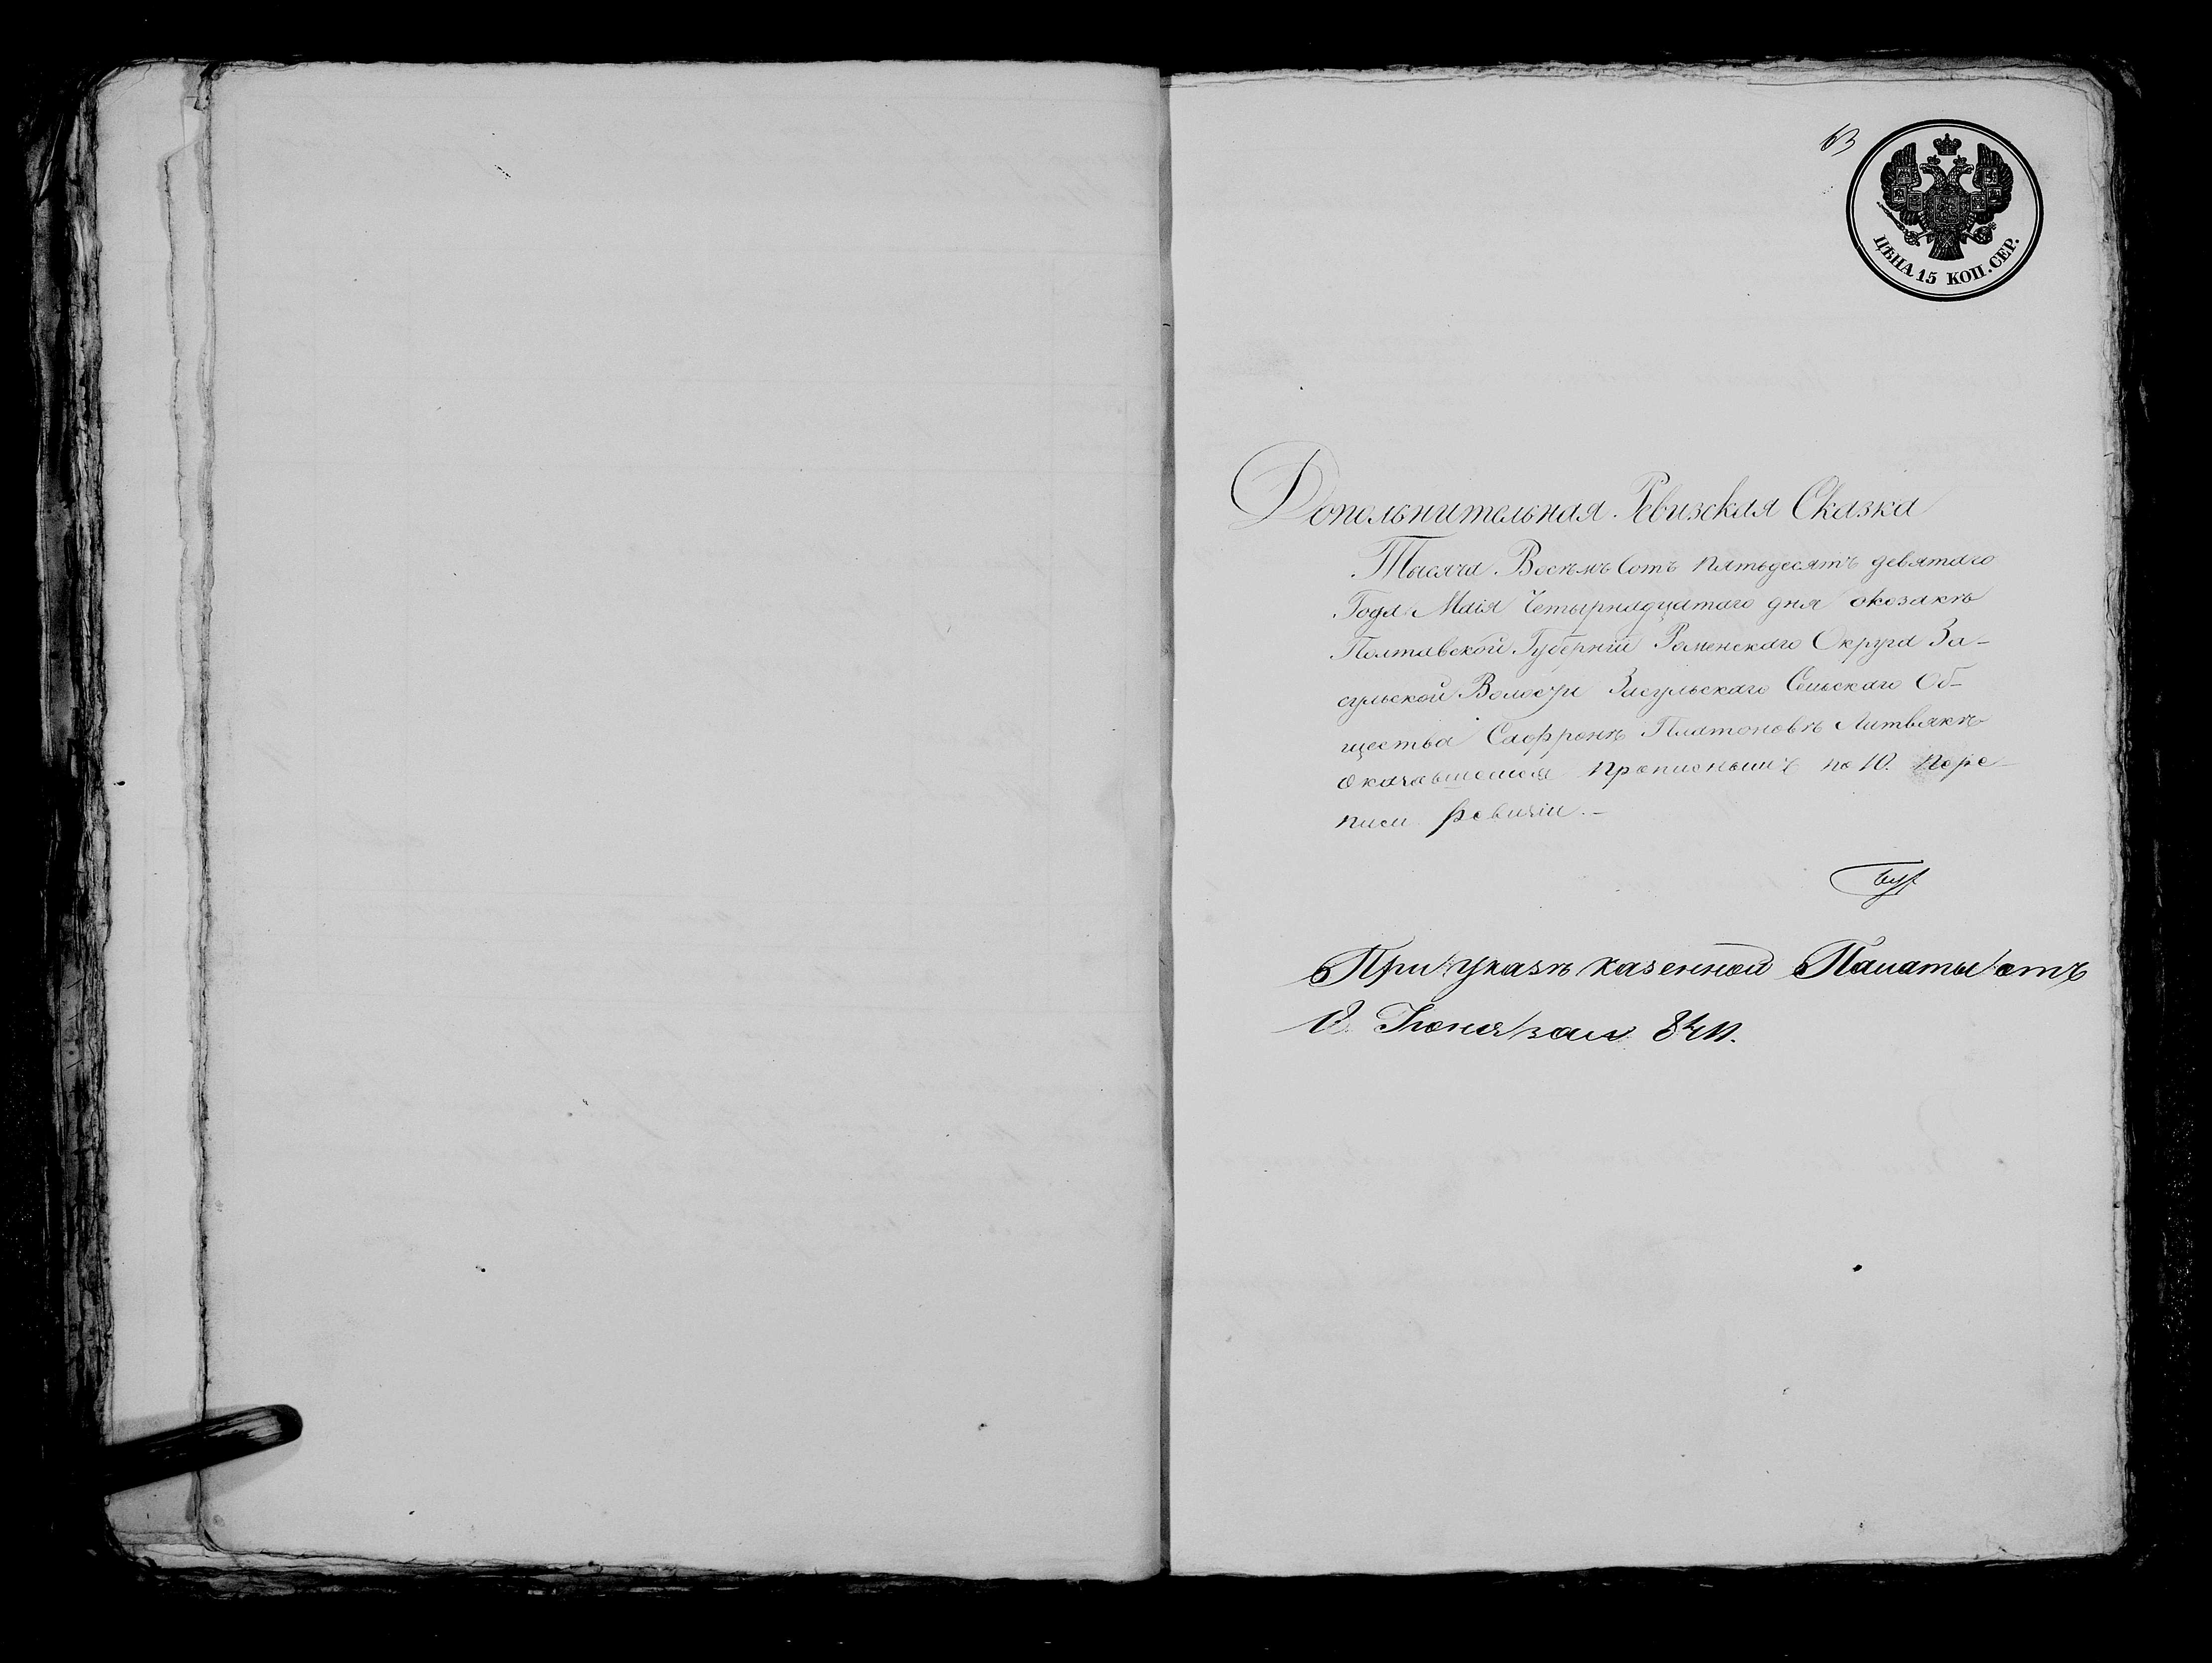 63
ЦѢНА 15 КОП. СЕР.
Допольнительная Ревизская Сказка
Тысяча Восѣмь Сотъ пятьдесятъ девятаго
Года Маія Четырнадцатаго дня окозакѣ
Полтавской Губерніи Роменскаго Округа За-
сульской Волости Засульскаго Сельскаго Об-
щества Сафронѣ Платоновѣ Литвякѣ
оказавшемся прописнымъ по 10. пере-
писи ревизіи.-
При указѣ казенной Палаты отъ
Іюня за №